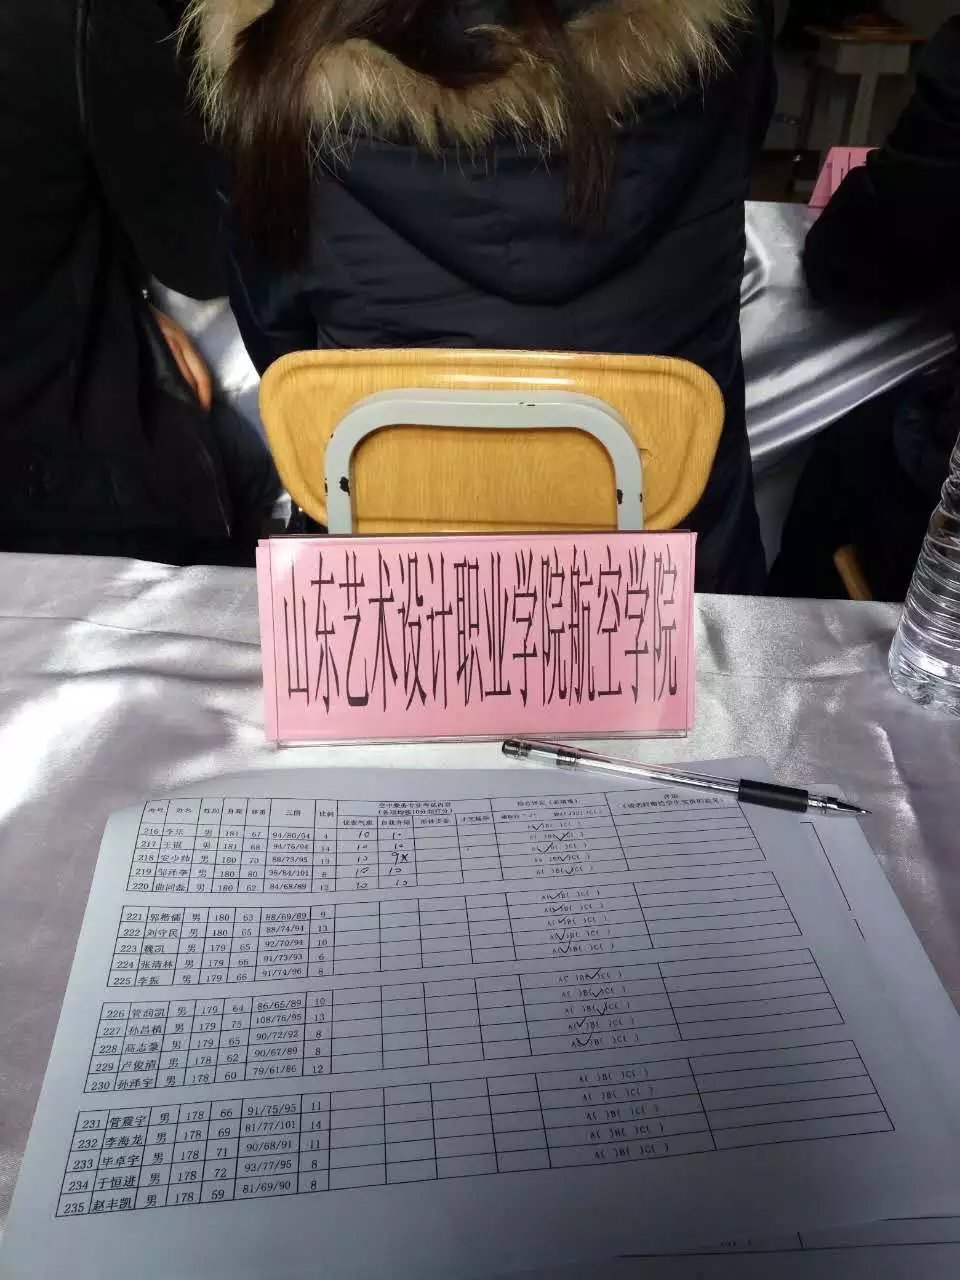 山东艺术设计职业学院航空学院
序号 姓名 性别 身高 体重 三围 比例 空中乘务专业考试内容 综合评定（必填项） 评语
（各项均按10分制打分）
仪表气质 自我介绍 形体姿态 才艺展示
216 李乐 男 181 67 94/80/94 4 10 10
217 王琪 男 181 68 14 10 10
218 安少帅 男 180 70 88/73/95 13 10
219 男 180 80 96/84/101 8 10 10
220 男 180 62 84/68/89 13 10 10
221 男 180 63 88/69/89 9 A( )B( )C( )
222 刘守民 男 180 65 88/74/94 13 A( )B( )C( )
223 魏凯 男 179 65 92/70/94 10 A( )B( )C( )
224 张清林 男 179 66 91/73/93 6 A( )B( )C( )
225 李振 男 179 66 91/74/96 8
226 管润凯 男 179 64 86/65/89 10 A( )B( )C( )
227 孙昌植 男 179 75 108/76/95 13 A( )B( )C( )
228 高志豪 男 179 65 90/72/92 8 A( )B( )C( )
229 卢俊潇 男 178 62 90/67/89 8 A( )B( )C( )
230 孙泽宇 男 178 60 79/61/86 12 A( )B( )C( )
231 管震宇 男 178 66 91/75/95 11 A( )B( )C( )
232 李海龙 男 178 69 81/77/101 14 A( )B( )C( )
233 毕卓宇 男 178 71 90/68/91 11 A( )B( )C( )
234 于恒进 男 178 72 93/77/95 8 A( )B( )C( )
235 赵丰凯 男 178 59 81/69/90 8 A( )B( )C( )